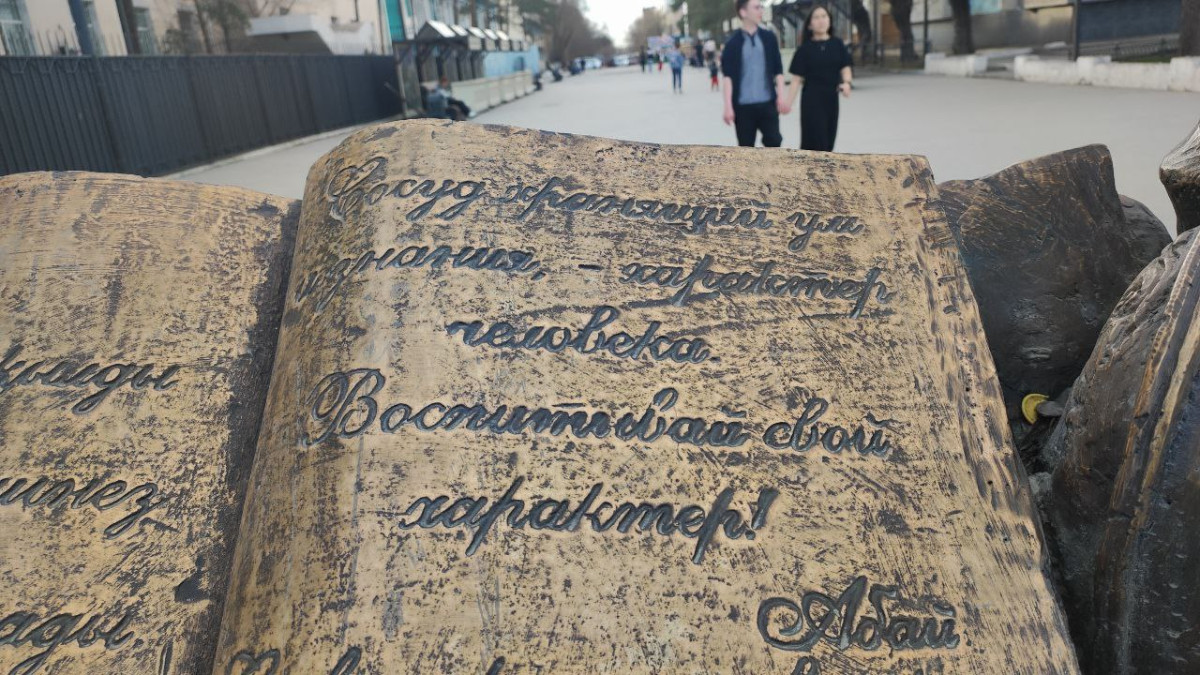 Сосуд хранящий ум
и знания, – характер
человека.
Воспитывай свой
характер!
Абай